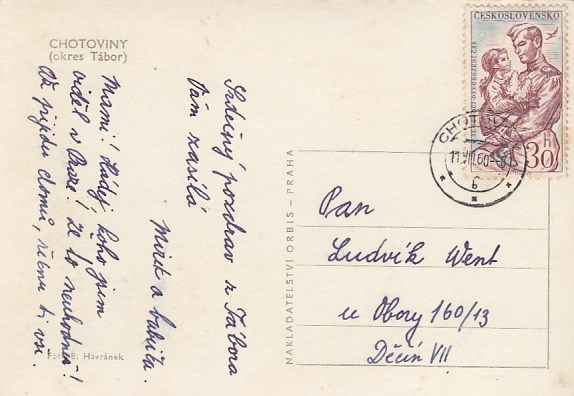 CHOTOVINY
(okres Tábor)
Srdečný pozdrav z Tábora
Vám zasílá
Mirek a babička.
Mami! Hádej, koho jsem
viděl v Táboře! Že to neuhodneš!
Až přijdu domů, řeknu ti vše.
Foto B. Havránek
NAKLADATELSTVÍ ORBIS – PRAHA
ČESKOSLOVENSKO
30 H
CHOTOVINY
60
6
Pan
Ludvík Went
u Obory 160/13
Děčín VII